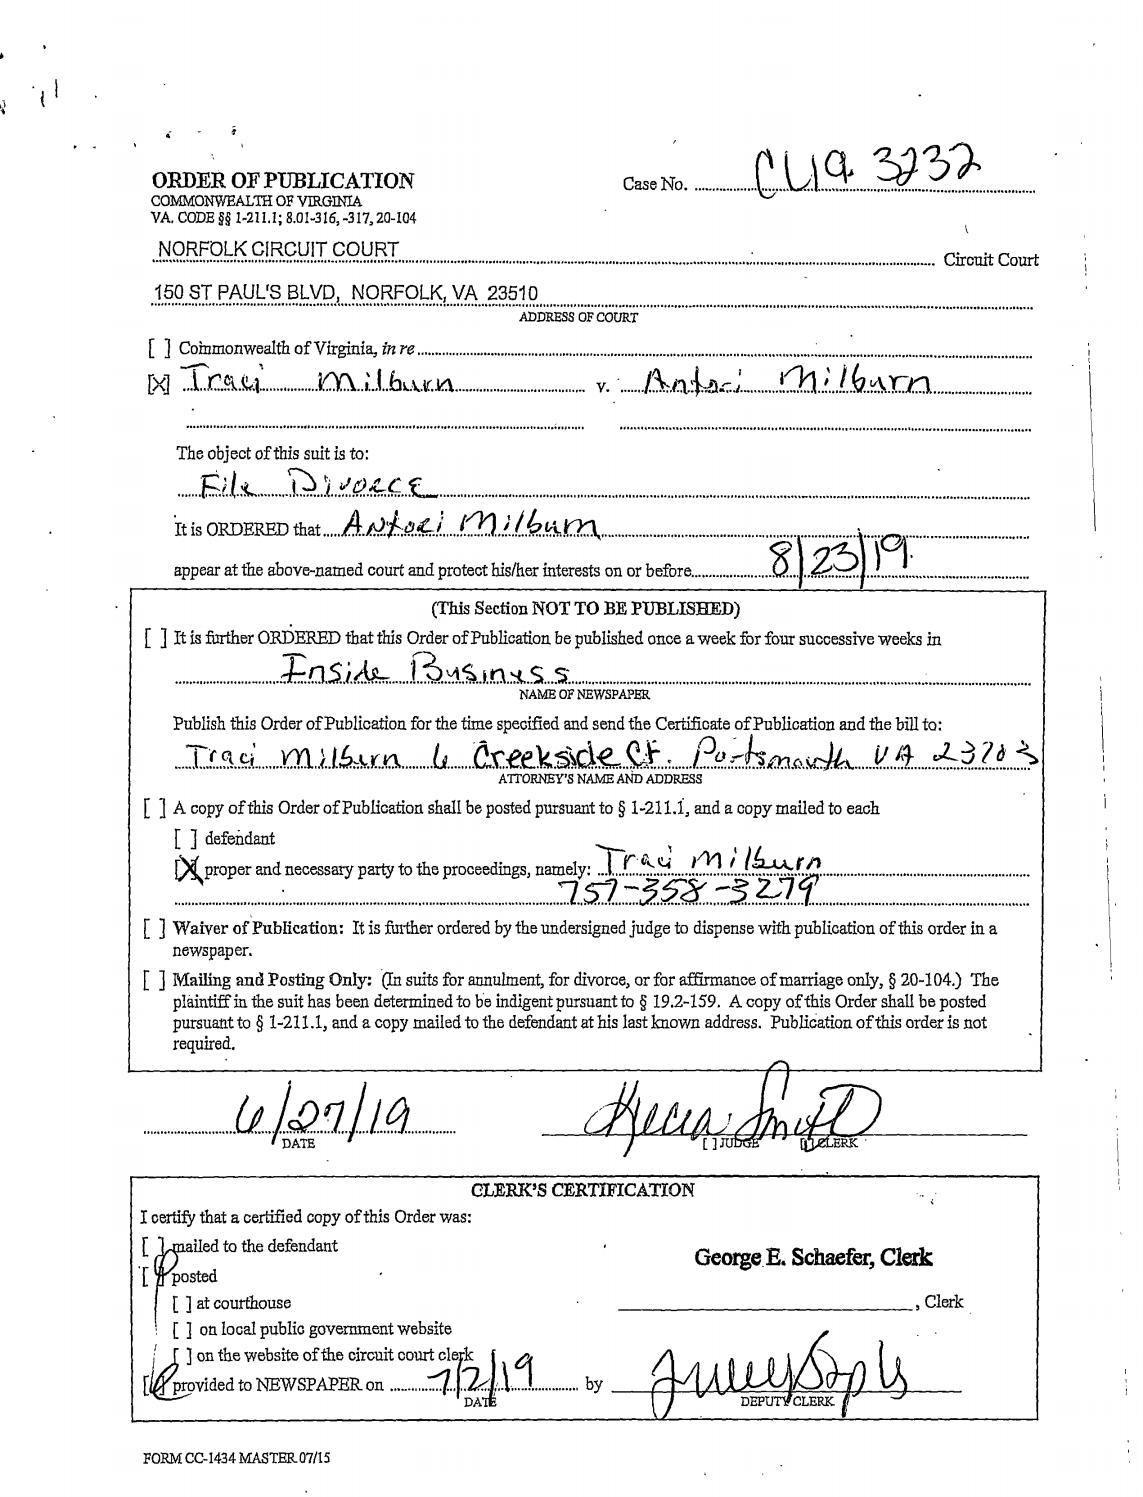 ORDER OF PUBLICATION
COMMONWEALTH OF VIRGINIA
VA. CODE §§ 1-211.1; 8.01-316, -317, 20-104
Case No. CL19 3232
NORFOLK CIRCUIT COURT Circuit Court
150 ST PAUL'S BLVD, NORFOLK, VA 23510
ADDRESS OF COURT
[ ] Commonwealth of Virginia, in re
[X] Traci Milburn v. Antoci Milburn
The object of this suit is to:
File Divorce
It is ORDERED that Antoci Milburn
appear at the above-named court and protect his/her interests on or before 8/23/19.
(This Section NOT TO BE PUBLISHED)
[ ] It is further ORDERED that this Order of Publication be published once a week for four successive weeks in
Inside Business
NAME OF NEWSPAPER
Publish this Order of Publication for the time specified and send the Certificate of Publication and the bill to:
Traci Milburn 6 Creekside Ct. Portsmouth VA 23703
ATTORNEY'S NAME AND ADDRESS
[ ] A copy of this Order of Publication shall be posted pursuant to § 1-211.1, and a copy mailed to each
[ ] defendant
[X] proper and necessary party to the proceedings, namely: Traci Milburn
757-358-3279
[ ] Waiver of Publication: It is further ordered by the undersigned judge to dispense with publication of this order in a
newspaper.
[ ] Mailing and Posting Only: (In suits for annulment, for divorce, or for affirmance of marriage only, § 20-104.) The
plaintiff in the suit has been determined to be indigent pursuant to § 19.2-159. A copy of this Order shall be posted
pursuant to § 1-211.1, and a copy mailed to the defendant at his last known address. Publication of this order is not
required.
6/27/19
DATE
[ ] JUDGE [ ] CLERK
CLERK'S CERTIFICATION
I certify that a certified copy of this Order was:
[ ] mailed to the defendant
[ ] posted
George E. Schaefer, Clerk
[ ] at courthouse
, Clerk
[ ] on local public government website
[ ] on the website of the circuit court clerk
[ ] provided to NEWSPAPER on 7/2/19 by
DATE
DEPUTY CLERK
FORM CC-1434 MASTER 07/15